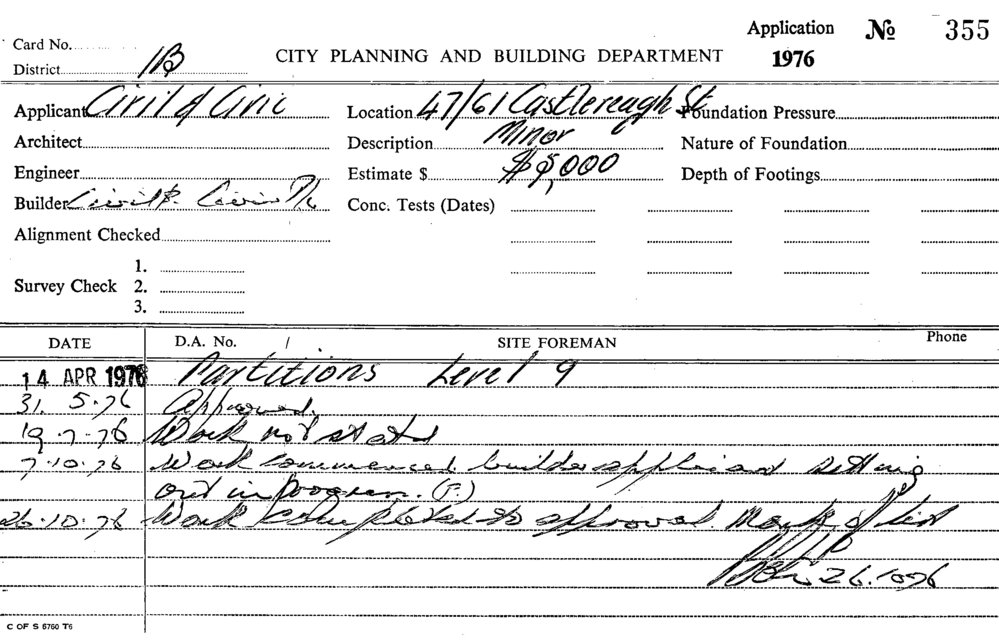 Application No 355
Card No.
District 1B
CITY PLANNING AND BUILDING DEPARTMENT
1976
Applicant Civil & Civic
Location 47/61 Castlereagh St
Foundation Pressure
Architect
Description Minor
Nature of Foundation
Engineer
Estimate $ $8,000
Depth of Footings
Builder Civil & Civic P/L
Conc. Tests (Dates)
Alignment Checked
1.
Survey Check 2.
3.
DATE D.A. No. / SITE FOREMAN Phone
14 APR 1976 Partitions Level 9
31. 5.76 Approved.
19.7.76 Work not started
7.10.76 Work commenced builders setting
out in progress. (F.)
26.10.76 Work completed to approval
26.10.76
C OF S 6760 T6